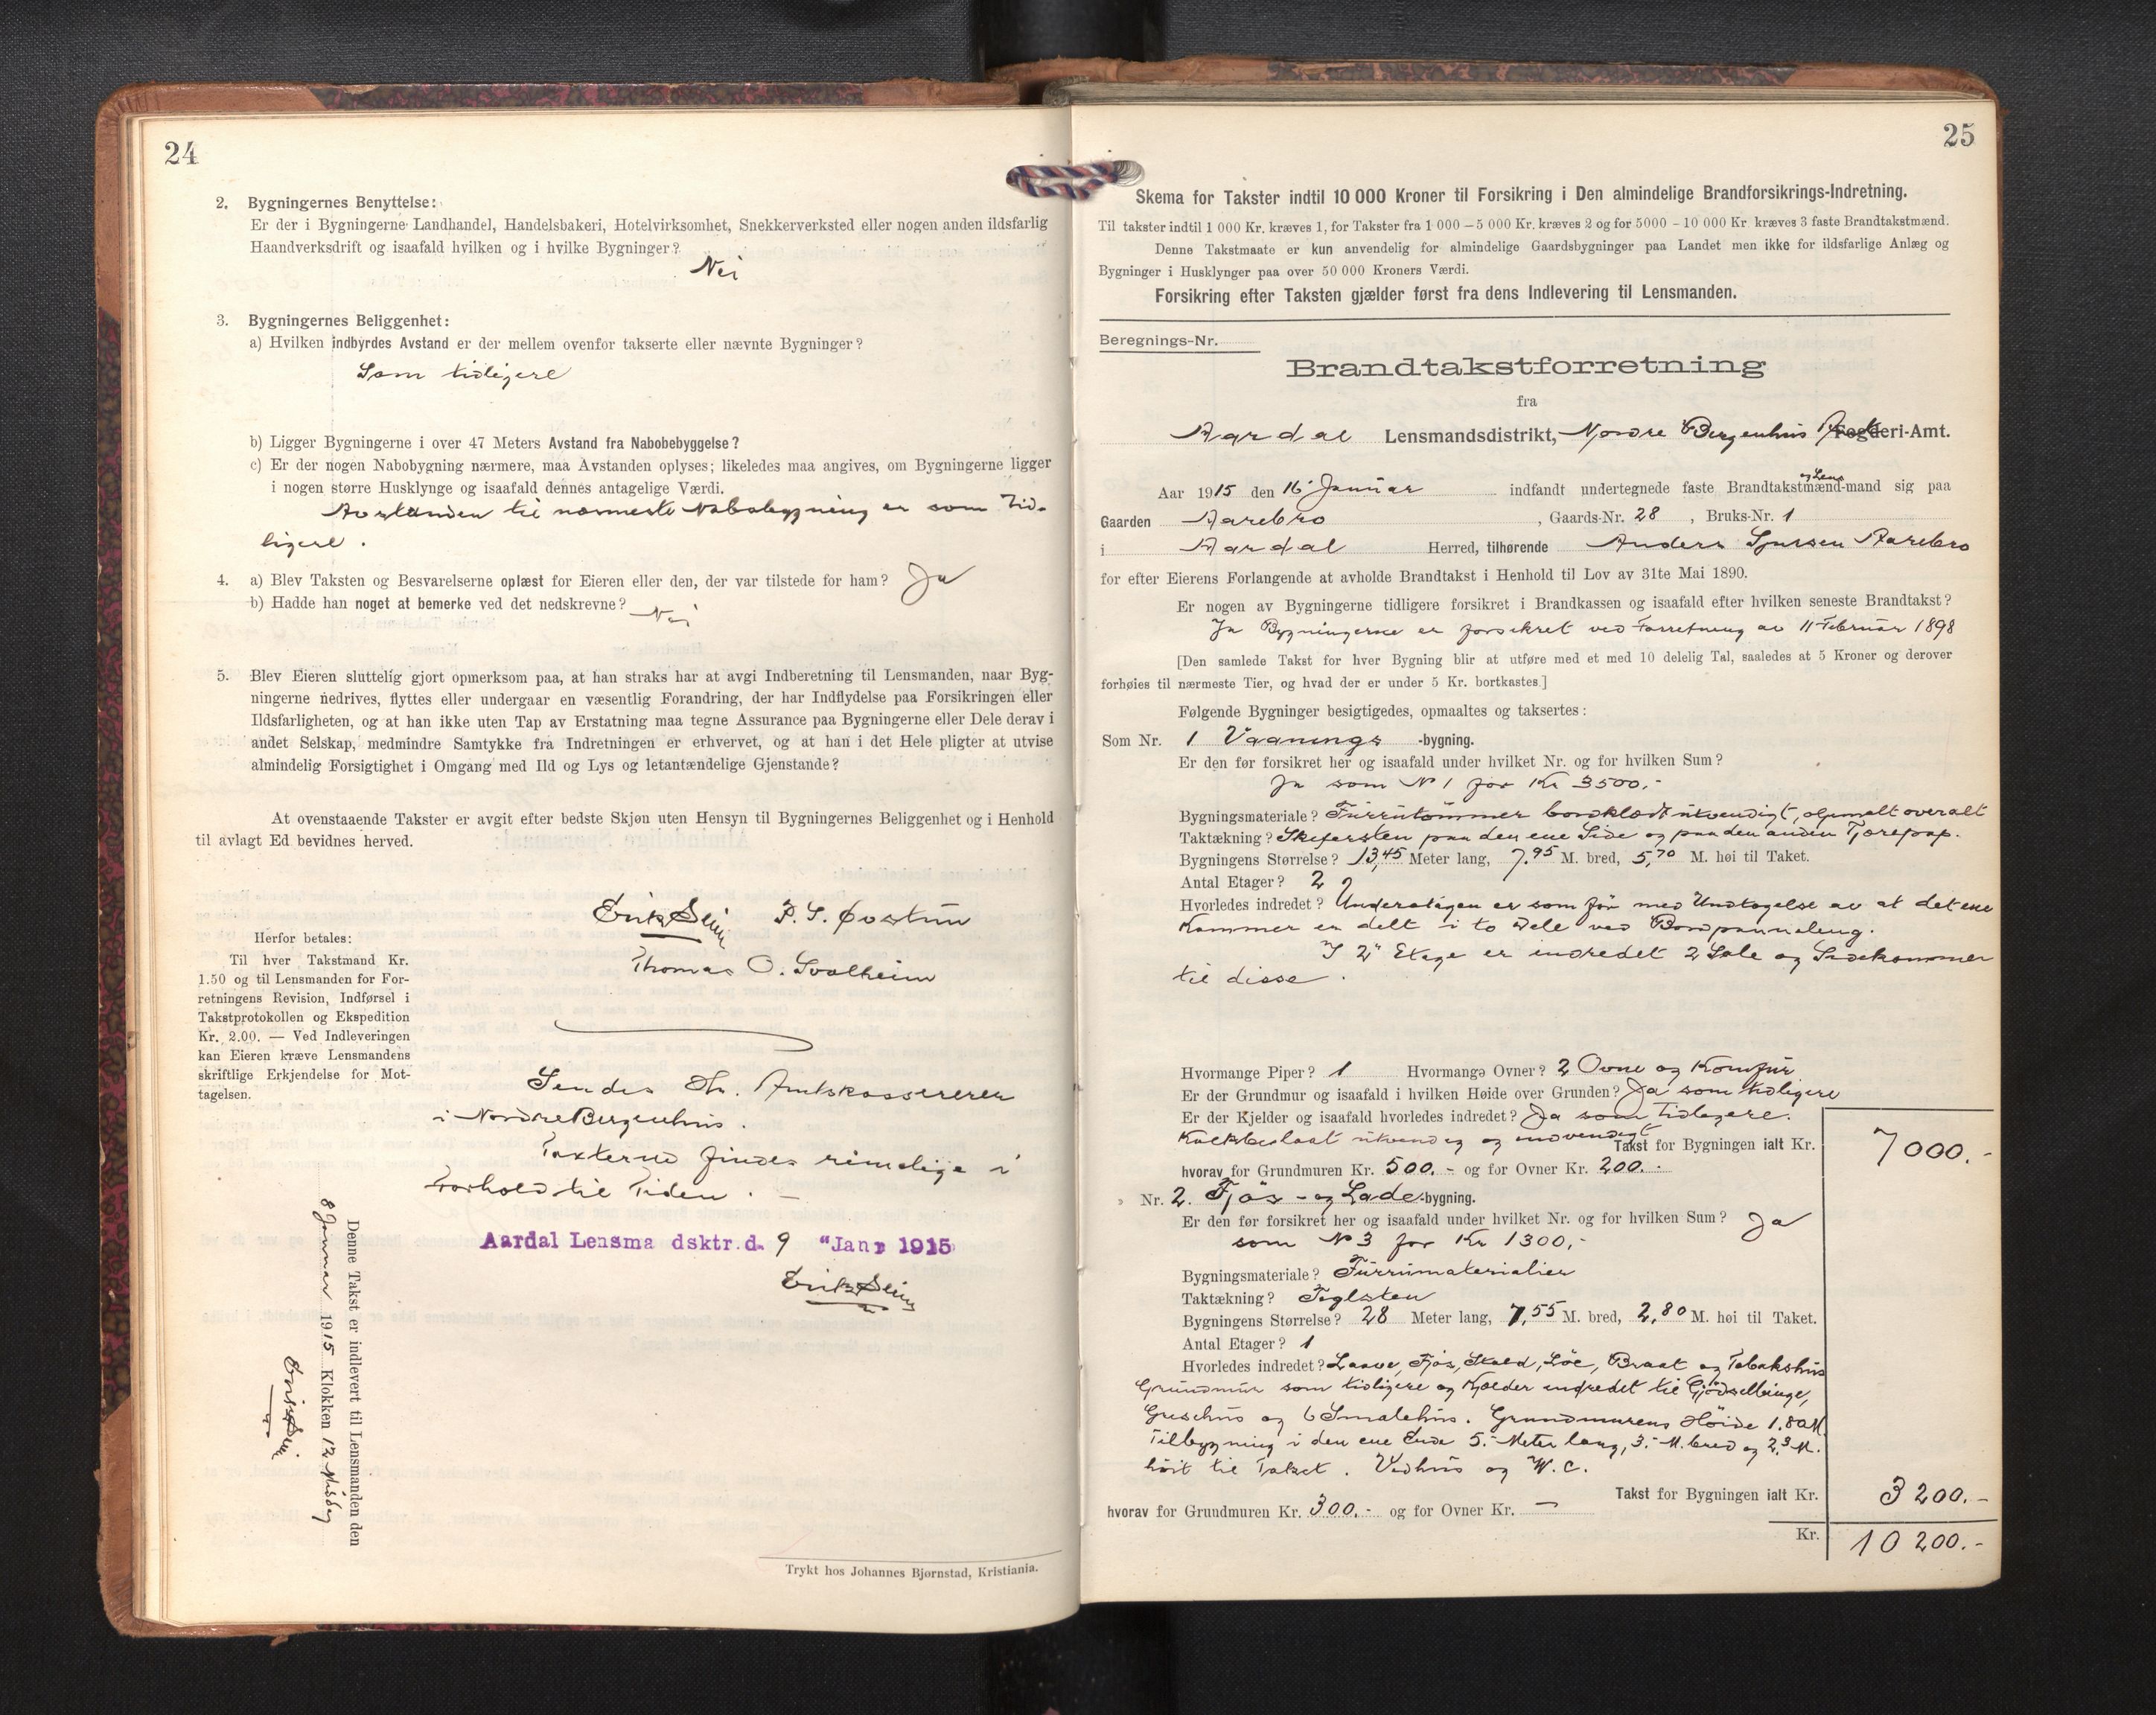 24
2. Bygningernes Benyttelse:
Er der i Bygningerne Landhandel, Handelsbakeri, Hotelvirksomhet, Snekkerverksted eller nogen anden ildsfarlig
Haandverksdrift og isaafald hvilken og i hvilke Bygninger?
Nei
3. Bygningernes Beliggenhet:
a) Hvilken indbyrdes Avstand er der mellem ovenfor takserte eller nævnte Bygninger?
Som tidligere
b) Ligger Bygningerne i over 47 Meters Avstand fra Nabobebyggelse?
c) Er der nogen Nabobygning nærmere, maa Avstanden oplyses; likeledes maa angives, om Bygningerne ligger
i nogen større Husklynge og isaafald dennes antagelige Værdi.
Avstanden til nærmeste Nabobygning er som Tid-
ligere.
4. a) Blev Taksten og Besvarelserne oplæst for Eieren eller den, der var tilstede for ham? Ja
b) Hadde han noget at bemerke ved det nedskrevne? Nei
5. Blev Eieren sluttelig gjort opmerksom paa, at han straks har at avgi Indberetning til Lensmanden, naar Byg-
ningerne nedrives, flyttes eller undergaar en væsentlig Forandring, der har Indflydelse paa Forsikringen eller
Ildsfarligheten, og at han ikke uten Tap av Erstatning maa tegne Assurance paa Bygningerne eller Dele derav i
andet Selskap, medmindre Samtykke fra Indretningen er erhvervet, og at han i det Hele pligter at utvise
almindelig Forsigtighet i Omgang med Ild og Lys og letantændelige Gjenstande?
At ovenstaaende Takster er avgit efter bedste Skjøn uten Hensyn til Bygningernes Beliggenhet og i Henhold
til avlagt Ed bevidnes herved.
Erik Seim P. S. Øvstun
Thomas O. Svalheim
Herfor betales:
Til hver Takstmand Kr.
1.50 og til Lensmanden for For-
retningens Revision, Indførsel i
Takstprotokollen og Ekspedition
Kr. 2.00. — Ved Indleveringen
kan Eieren kræve Lensmandens
skriftlige Erkjendelse for Mot-
tagelsen.
Sendes Hr. Amtskassereren
i Nordre Bergenhus.
Taxterne findes rimelige i
Forhold til Tiden. —
Aardal Lensma dsktr. d. 9 "Jan r 1915
Erik Seim
Denne Takst er indlevert til Lensmanden den
8 Januar 1915 Klokken 12 Middag
Erik Seim
Trykt hos Johannes Bjørnstad, Kristiania.
25
Skema for Takster indtil 10 000 Kroner til Forsikring i Den almindelige Brandforsikrings-Indretning.
Til takster indtil 1 000 Kr. kræves 1, for Takster fra 1 000 – 5 000 Kr. kræves 2 og for 5000 - 10 000 Kr kræves 3 faste Brandtakstmænd.
Denne Takstmaate er kun anvendelig for almindelige Gaardsbygninger paa Landet men ikke for ildsfarlige Anlæg og
Bygninger i Husklynger paa over 50 000 Kroners Værdi.
Forsikring efter Taksten gjælder først fra dens Indlevering til Lensmanden.
Beregnings-Nr.
Brandtakstforretning
fra
Aardal Lensmandsdistrikt, Nordre Bergenhus Fogderi-Amt.
og Lens
Aar 1915 den 16' Januar indfandt undertegnede faste Brandtakstmænd-mand sig paa
Gaarden Aarebro, Gaards-Nr. 28, Bruks-Nr. 1
i Aardal Herred, tilhørende Anders Sjursen Aarebro
for efter Eierens Forlangende at avholde Brandtakst i Henhold til Lov av 31te Mai 1890.
Er nogen av Bygningerne tidligere forsikret i Brandkassen og isaafald efter hvilken seneste Brandtakst?
Ja Bygningerne er forsikret ved Forretning av 11 Februar 1898
[Den samlede Takst for hver Bygning blir at utføre med et med 10 delelig Tal, saaledes at 5 Kroner og derover
forhøies til nærmeste Tier, og hvad der er under 5 Kr. bortkastes.]
Følgende Bygninger besigtigedes, opmaaltes og taksertes:
Som Nr. 1 Vaanings -bygning.
Er den før forsikret her og isaafald under hvilket Nr. og for hvilken Sum?
Ja som No 1 for Kr 3500,-
Bygningsmateriale? Furrutømmer bordklædt utvendigt, oljemalt overalt
Taktækning? Skifersten paa den ene Side og paa den anden Tjærepap.
Bygningens Størrelse? 13,45 Meter lang, 7,95 M. bred, 5,70 M. høi til Taket.
Antal Etager? 2
Hvorledes indredet? Underetagen er som før med Undtagelse av at det ene
Kammer er delt i to Dele ved Bordpanneling.
I 2' Etage er indredet 2 Sale og Sidekammer
til disse.
Hvormange Piper? 1 Hvormange Ovner? 2 Ovne og Komfur
Er der Grundmur og isaafald i hvilken Høide over Grunden? Ja som tidligere
Er der Kjelder og isaafald hvorledes indredet? Ja som Tidligere.
Kalkbeslaat utvendig og indvendigt
Takst for Bygningen ialt Kr. 7000.-
hvorav for Grundmuren Kr. 500.- og for Ovner Kr. 200.-
" Nr. 2. Fjøs- og Lade-bygning.
Er den før forsikret her og isaafald under hvilket Nr. og for hvilken Sum? Ja
som No 3 for Kr 1300,-
Bygningsmateriale? Furrumaterialier
Taktækning? Teglsten
Bygningens Størrelse? 28 Meter lang, 7,55 M. bred, 2,80 M. høi til Taket.
Antal Etager? 1
Hvorledes indredet? Laave, Fjøs, Stald, Løe, Braat og Tobakshus
Grundmur som tidligere og Kjælder indredet til Gjødselbinge,
Grisehus og 6 Smalehus. Grundmurens Høide 1.80 M.
Tilbygning i den ene Ende 5.- Meter lang, 3.- M. bred og 2,3 M.
høit til Taket. Vedhus og W.C.
Takst for Bygningen ialt Kr. 3200.-
hvorav for Grundmuren Kr. 300.- og for Ovner Kr. —
Kr. 10200.-